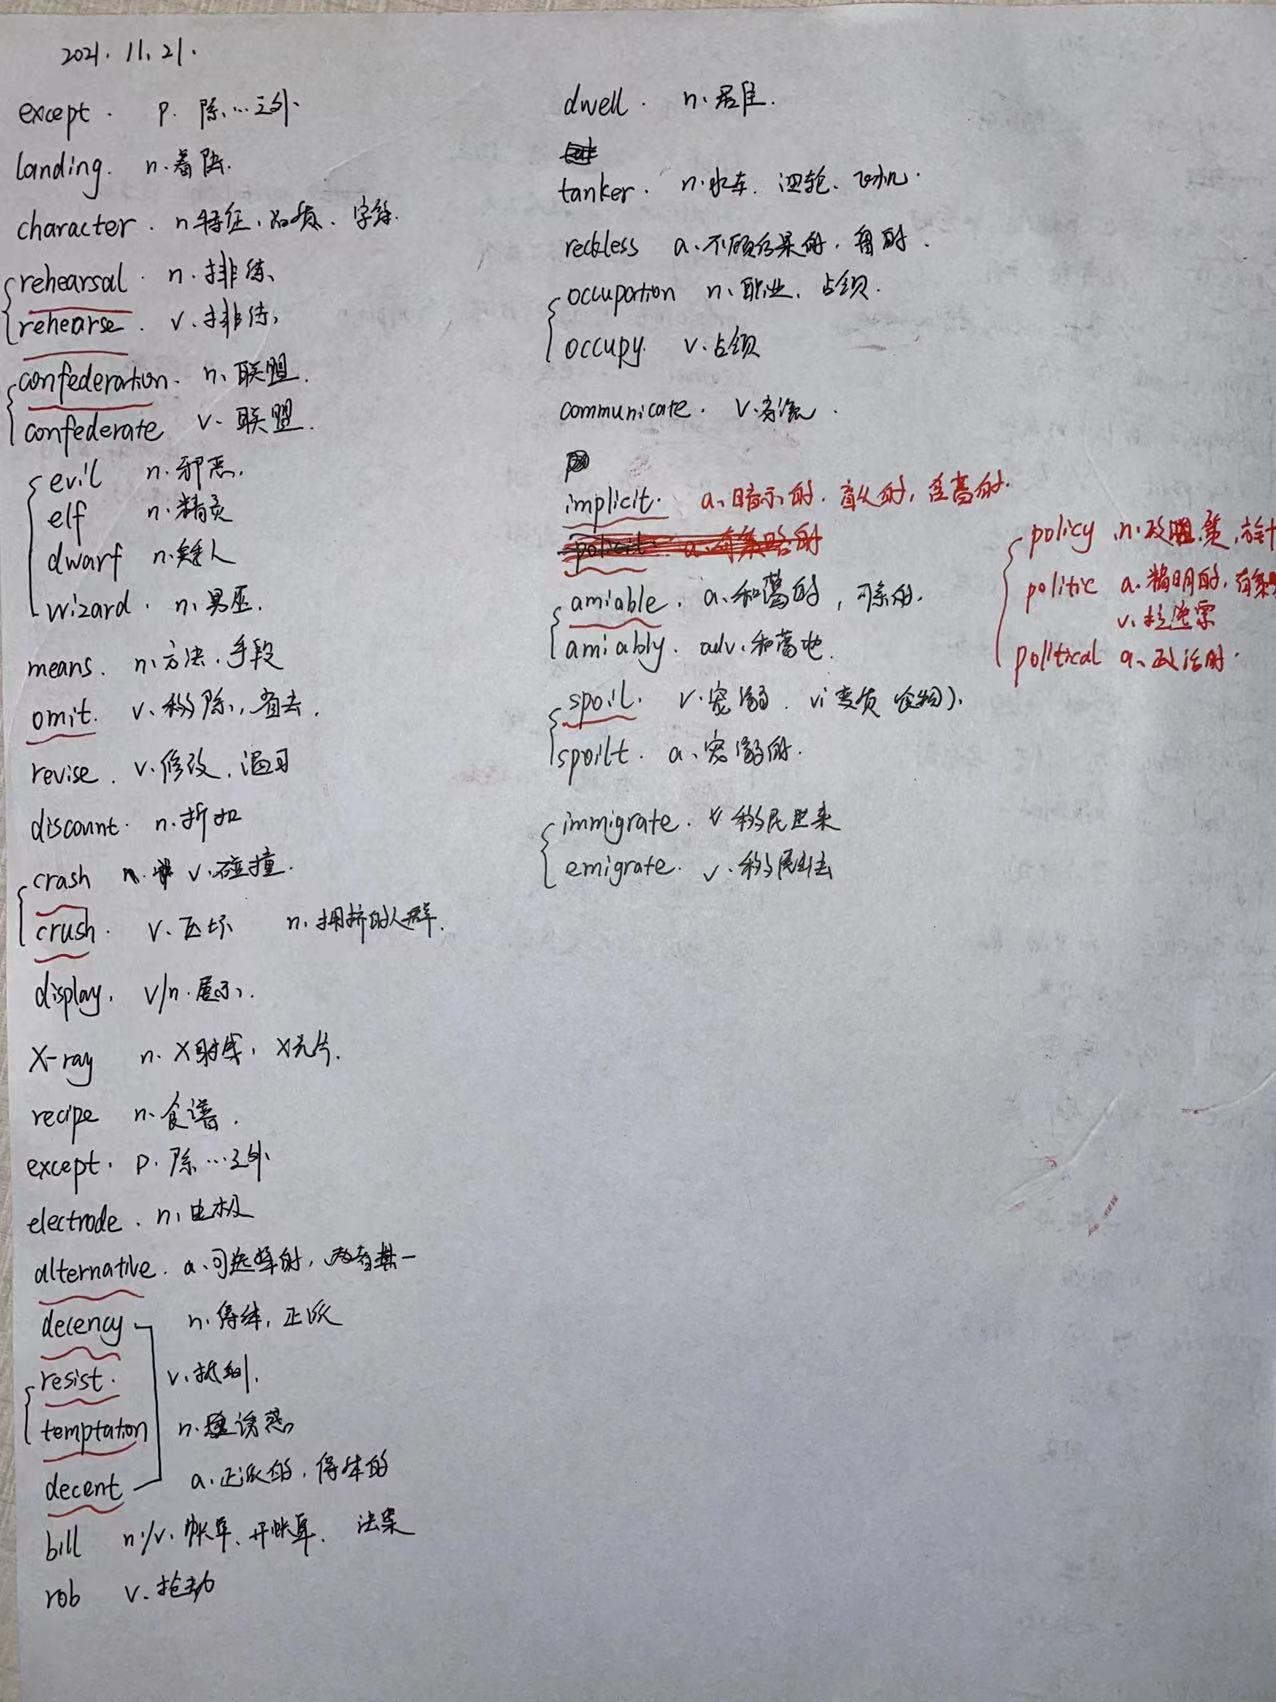 2021. 11. 21.
except. p. 除…之外
landing. n. 着陆.
character. n 特征、品质、字符.
rehearsal. n. 排练
rehearse. v. 排练
confederation. n. 联盟.
confederate v. 联盟.
evil n. 邪恶.
elf n. 精灵
dwarf n. 矮人
wizard. n. 男巫.
means. n. 方法、手段
omit. v. 移除, 省去.
revise. v. 修改, 温习
discount. n. 折扣
crash v. 碰撞.
crush. v. 压坏 n. 拥挤的人群.
display. v/n. 展示.
X-ray n. X射线, X光片.
recipe n. 食谱.
except. p. 除…之外
electrode. n. 电极
alternative. a. 可选择的, 两者其一
decency n. 得体, 正派
resist. v. 抵制.
temptation n. 诱惑
decent a. 正派的, 得体的
bill n./v. 帐单、开帐单. 法案
rob v. 抢劫
dwell. n. 居住.
tanker. n. 水车、油轮、飞机.
reckless a. 不顾后果的, 鲁的.
occupation n. 职业、占领.
occupy. v. 占领
communicate. v. 交流.
implicit. a. 暗示的. 盲从的, 含蓄的.
policy n. 政策, 方针
politic a. 精明的, 有策
v. 拉选票
political a. 政治的.
amiable. a. 和蔼的, 可亲的.
amiably. adv. 和蔼地.
spoil. v. 宠溺. vi 变质 (食物).
spoilt. a. 宠溺的.
immigrate. v 移民进来
emigrate. v. 移民出去